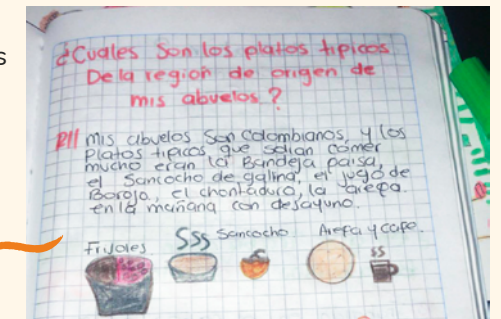 s
¿Cuales Son los platos tipicos
De la region de origen de
mis abuelos?
R// mis abuelos Son colombianos, y los
Platos tipicos que solian comer
mucho eran la Bandeja paisa,
el Sancocho de gallina, el jugo de
Borojo, el chontaduro, la arepa.
en la mañana con desayuno.
Frijoles
SSS Sancocho
Arepa y cafe.
SS